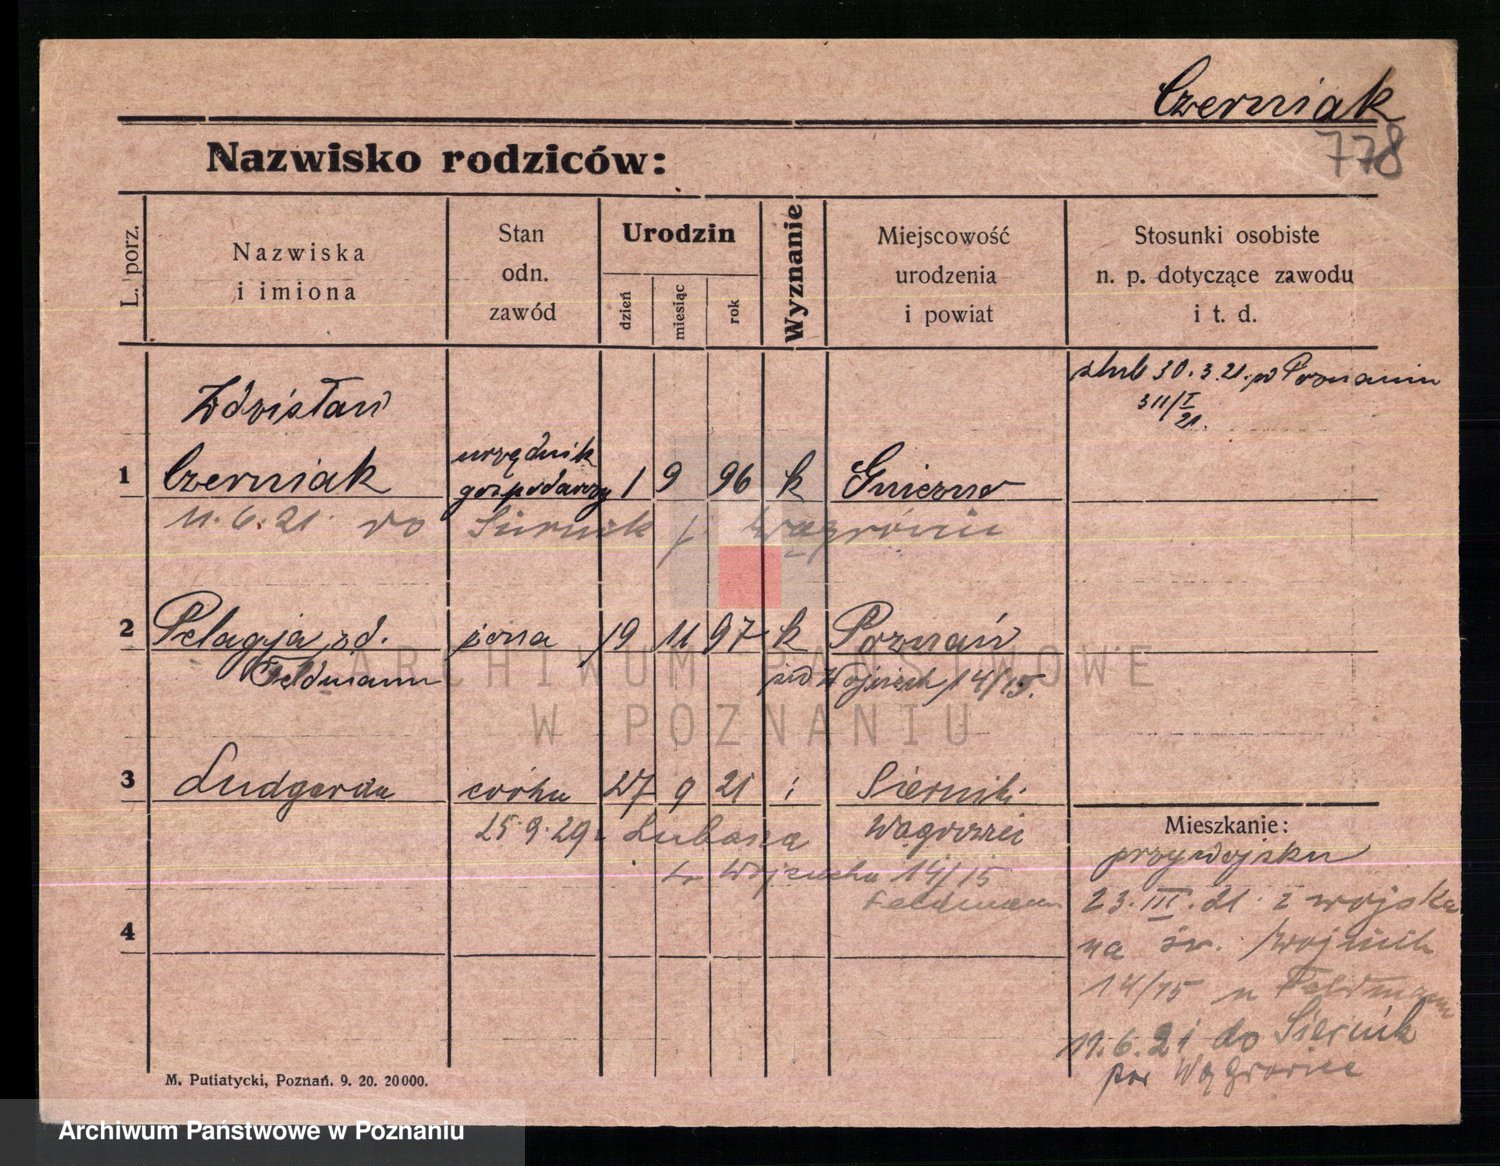 Czerniak
778
Nazwisko rodziców:
L. porz.
Nazwiska
i imiona
Stan
odn.
zawód
Urodzin
dzień
miesiąc
rok
Wyznanie
Miejscowość
urodzenia
i powiat
Stosunki osobiste
n. p. dotyczące zawodu
i t. d.
ślub 30.3.21. w Poznaniu
311/I
21.
Zdzisław
1 Czerniak urzędnik gospodarczy 1 9 96 k Gniezno
11.6.21. do Siernik p. Wągrówiec
2 Pelagja zd. żona 19 11 97 k Poznań
Feldmann
Wojciech 14/15.
3 Ludgarda córka 27 9 21 Sierniki
25.9.29. Lubasza Wągrowiec
Wojciecha 14/15
Feldmann
4
Mieszkanie:
przy wojsku
23.III.21 z wojska
na św. Wojciech
14/15 u Feldmann
11.6.21 do Siernik
pow Wągrowiec
M. Putiatycki, Poznań. 9. 20. 20000.
ARCHIWUM PAŃSTWOWE
W POZNANIU
Archiwum Państwowe w Poznaniu